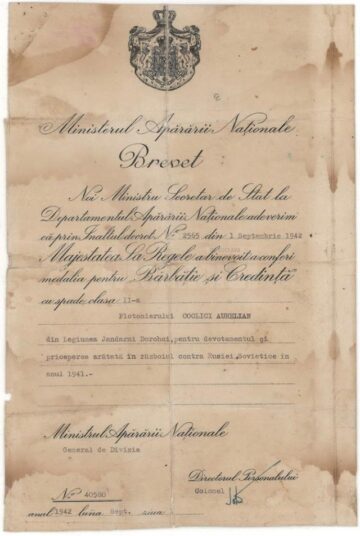 Ministerul Apărării Naționale
Brevet
Noi Ministru Secretar de Stat la
Departamentul Apărării Naționale adeverim
că prin Înaltul decret Nº 2565 din 1 Septembrie 1942
Majestatea Sa Regele a binevoit a conferi
medalia pentru „Bărbăție și Credință”
cu spade clasa II-a
Plotonierului COOLICI AURELIAN
din Legiunea Jandarmi Dorohoi, pentru devotamentul și
priceperea arătată în războiul contra Rusiei Sovietice în
anul 1941.-
Ministrul Apărării Naționale
General de Divizie
Directorul Personalului
Colonel
Nº 40580
anul 1942 luna Sept. ziua